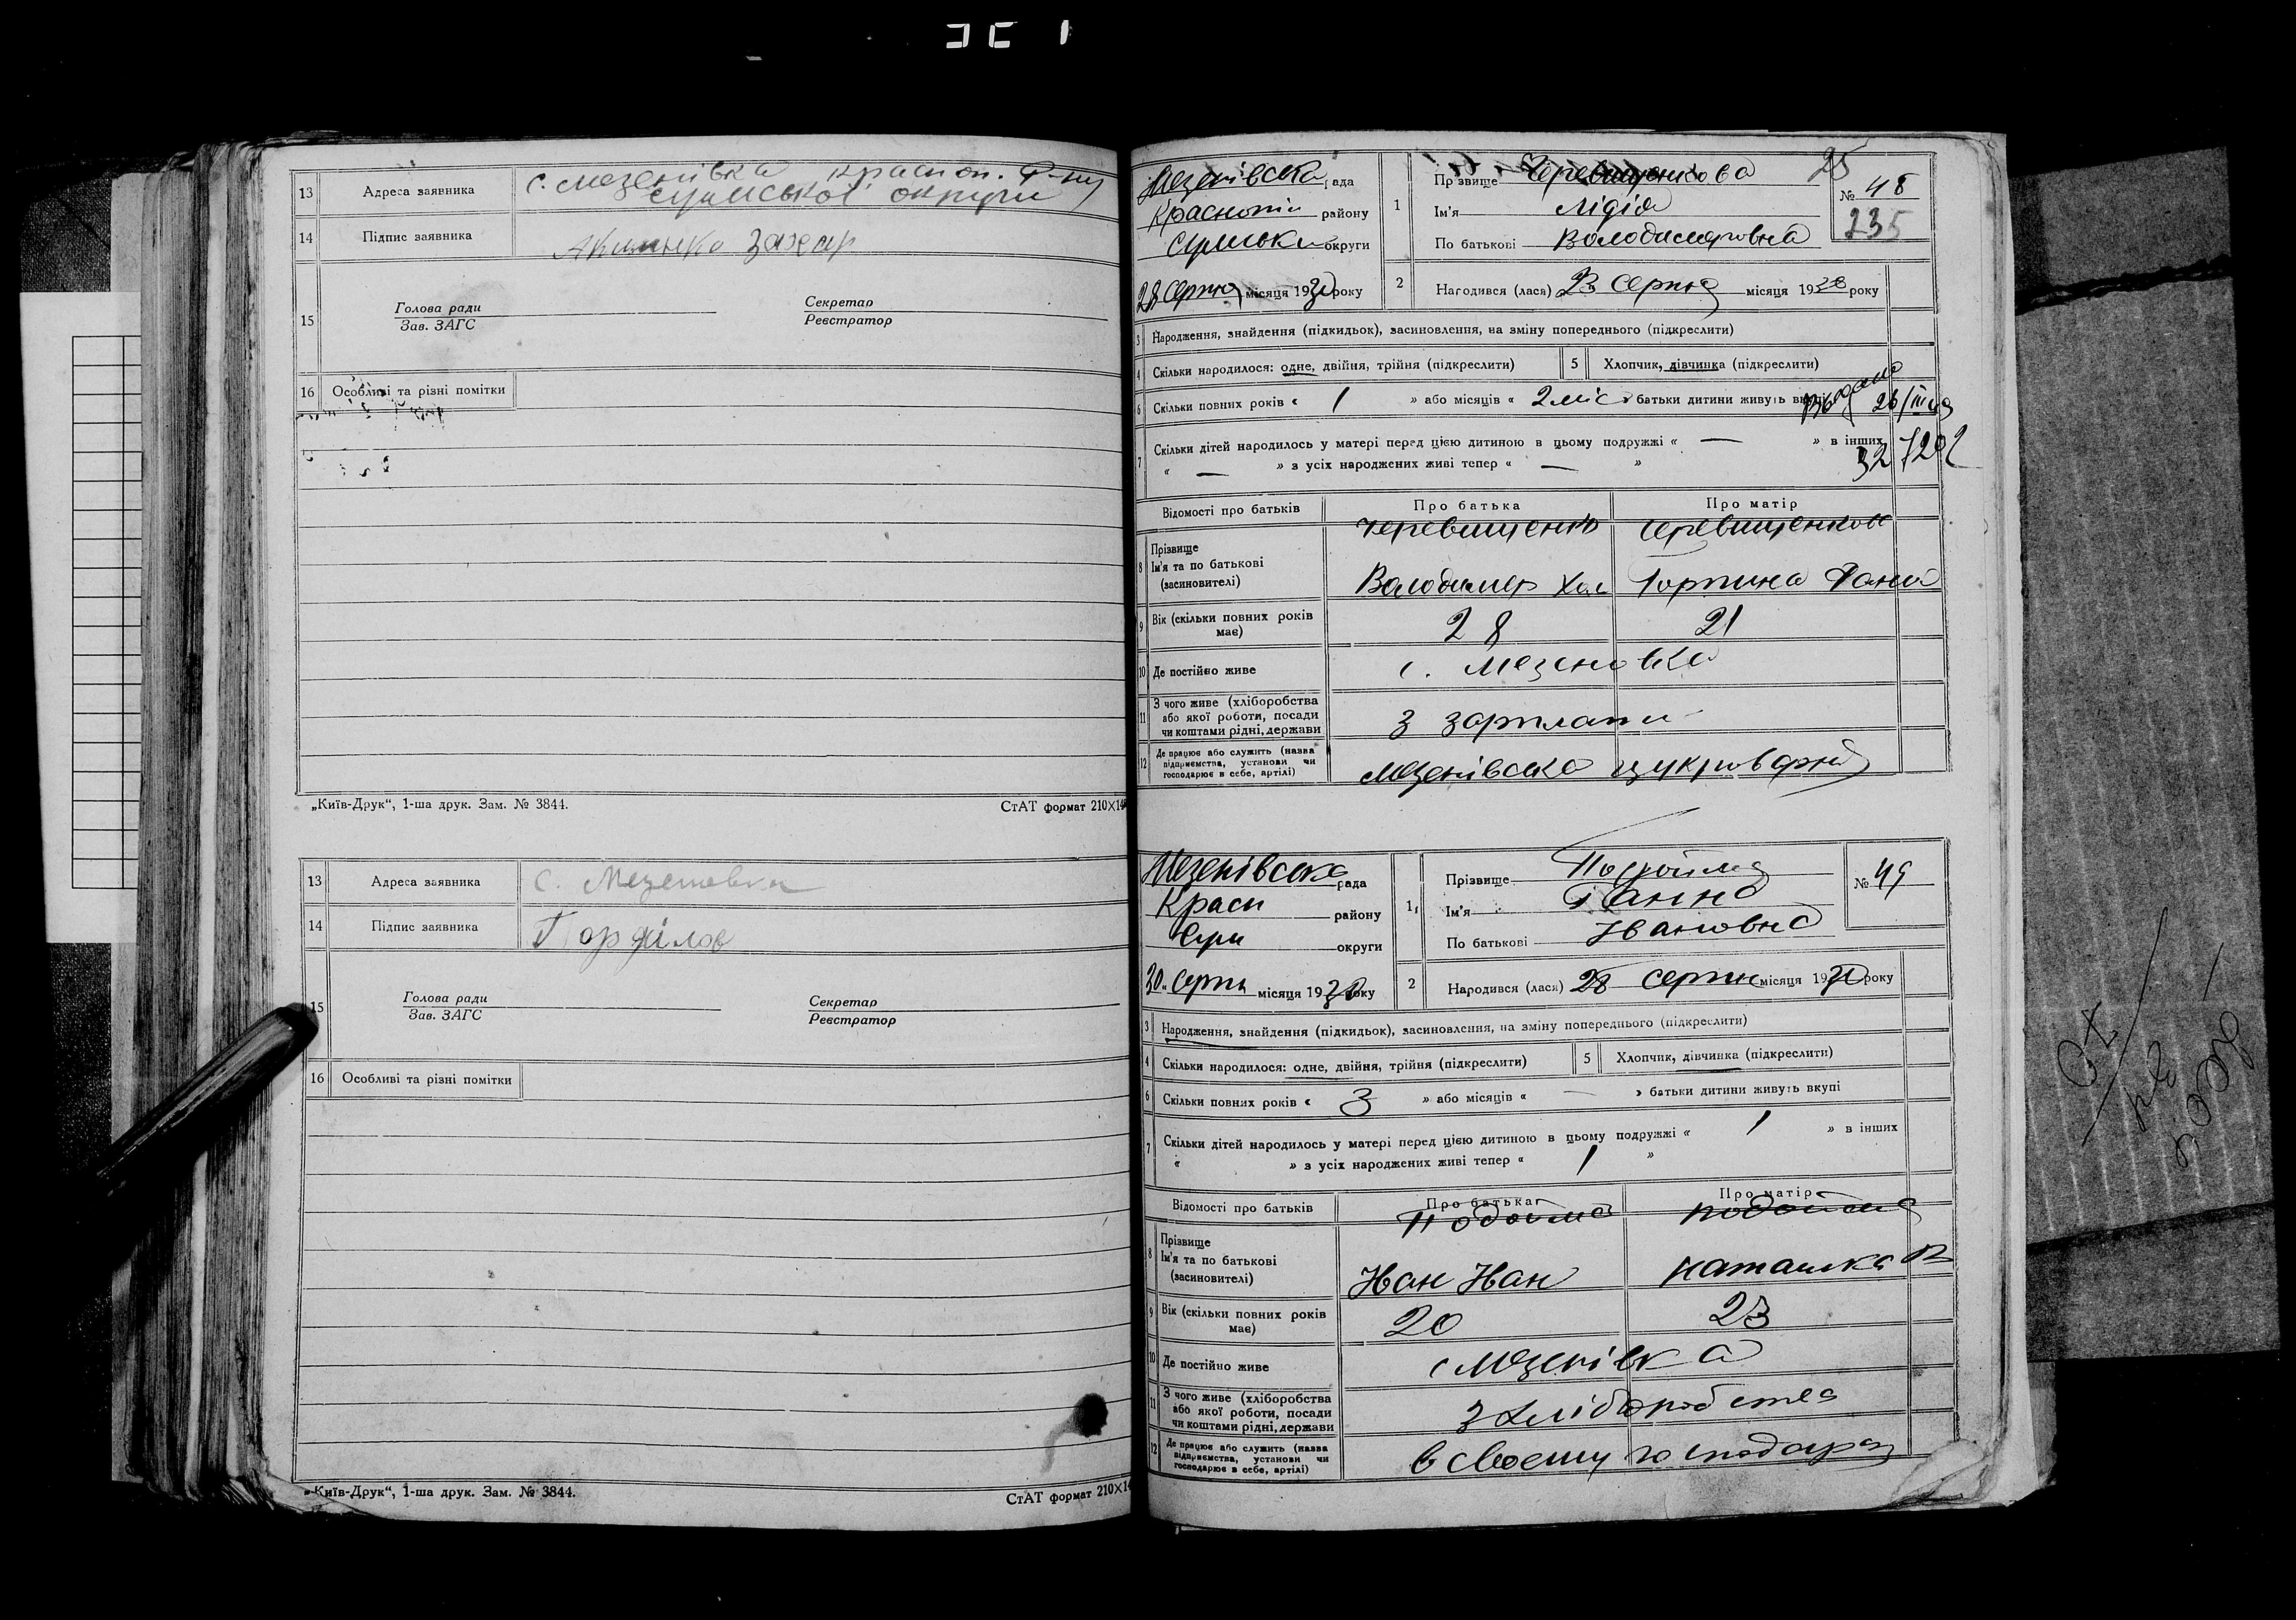 13 Адреса заявника с. Мезенівка Краснoп. Р-ну
Сумської округи
14 Підпис заявника Акименко Захар
15 Голова ради Секретар
Зав. ЗАГС Реєстратор
16 Особливі та різні помітки
„Київ-Друк“, 1-ша друк. Зам. № 3844. СтАТ формат 210×14
13 Адреса заявника с. Мезеновка
14 Підпис заявника
15 Голова ради Секретар
Зав. ЗАГС Реєстратор
16 Особливі та різні помітки
„Київ-Друк“, 1-ша друк. Зам. № 3844. СтАТ формат 210×14
Мезенівська рада
Краснопіл району
Сумськи округи
28 Серпня місяця 1930 року
1 Прізвище Черевищенкова
Ім'я Лідія
По батькові Володимеровна
25
№ 48
235
2 Народився (лася) 23 Серпня місяця 19 року
3 Народження, знайдення (підкидьок), засиновлення, на зміну попереднього (підкреслити)
4 Скільки народилося: одне, двійня, трійня (підкреслити) 5 Хлопчик, дівчинка (підкреслити)
6 Скільки повних років « 1 » або місяців « 2 міс » батьки дитини живуть вкупі
7 Скільки дітей народилось у матері перед цією дитиною в цьому подружжі « — » в інших
« — » з усіх народжених живі тепер « — »
Відомості про батьків Про батька Про матір
8 Прізвище Черевищенко Черевищенков
Ім'я та по батькові
(засиновителі) Володимер Хал Горпина Фана
9 Вік (скільки повних років має) 28 21
10 Де постійно живе с. Мезеновка
11 З чого живе (хліборобства
або якої роботи, посади
чи коштами рідні, держави з зарплати
12 Де працює або служить (назва
підприємства, установи чи
господарює в себе, артілі) Мезенівська цукроварня
Мезенівська рада
Красн району
Сум округи
30 Серпн місяця 1930 року
1 Прізвище Подойма
Ім'я Ганна
По батькові Івановна
№ 49
2 Народився (лася) 28 серпн місяця 1930 року
3 Народження, знайдення (підкидьок), засиновлення, на зміну попереднього (підкреслити)
4 Скільки народилося: одне, двійня, трійня (підкреслити) 5 Хлопчик, дівчинка (підкреслити)
6 Скільки повних років « 3 » або місяців « — » батьки дитини живуть вкупі
7 Скільки дітей народилось у матері перед цією дитиною в цьому подружжі « 1 » в інших
« » з усіх народжених живі тепер « 1 »
Відомості про батьків Про батька Про матір
8 Прізвище Подойма Подойма
Ім'я та по батькові
(засиновителі) Иван Иван Наташка В
9 Вік (скільки повних років має) 20 23
10 Де постійно живе с Мезенівка
11 З чого живе (хліборобства
або якої роботи, посади
чи коштами рідні, держави з хліборобства
12 Де працює або служить (назва
підприємства, установи чи
господарює в себе, артілі) в своему господарз